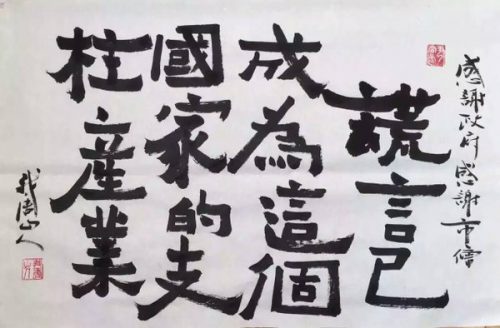 感謝政府感謝
謊言已
成為這個
國家的支
柱産業
山人